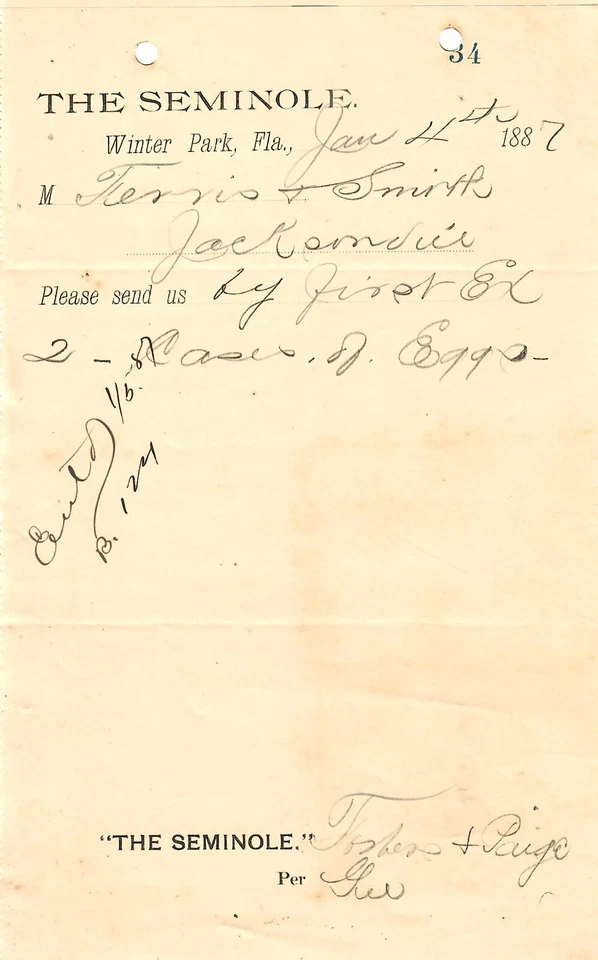 34
THE SEMINOLE.
Winter Park, Fla., Jan 4th 1887
M Ferris & Smith
Jacksonville
Please send us by first Ex
2 - Cases. of. Eggs -
Ent'd 1/5-87
B. 124
"THE SEMINOLE." Fosters & Paige
Per